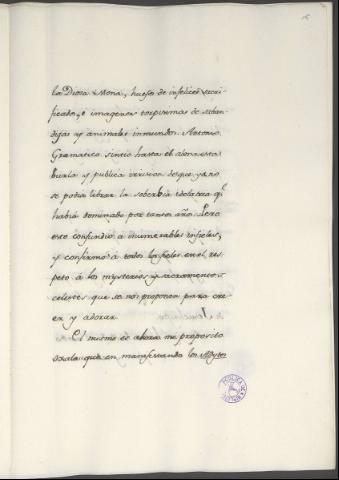 la Diosa Mona, huesos de infelices sacri-
ficados, e imagenes torpisimas de saban-
dijas y animales inmundos. Antonio
Gramatico sintio hasta el alma esta
burla y publica irrision de que ya no
se podia librar la soberbia idolatria qe.
habia dominado por tantos años. Pero
esto confundio à inumerables infieles,
y confirmo à todos los fieles en el res-
peto à los mysterios y sacramentos
celestes que se nos proponen para cre-
er y adorar.
El mismo es ahora mi proposito
Ojala que en manifestando los Myste